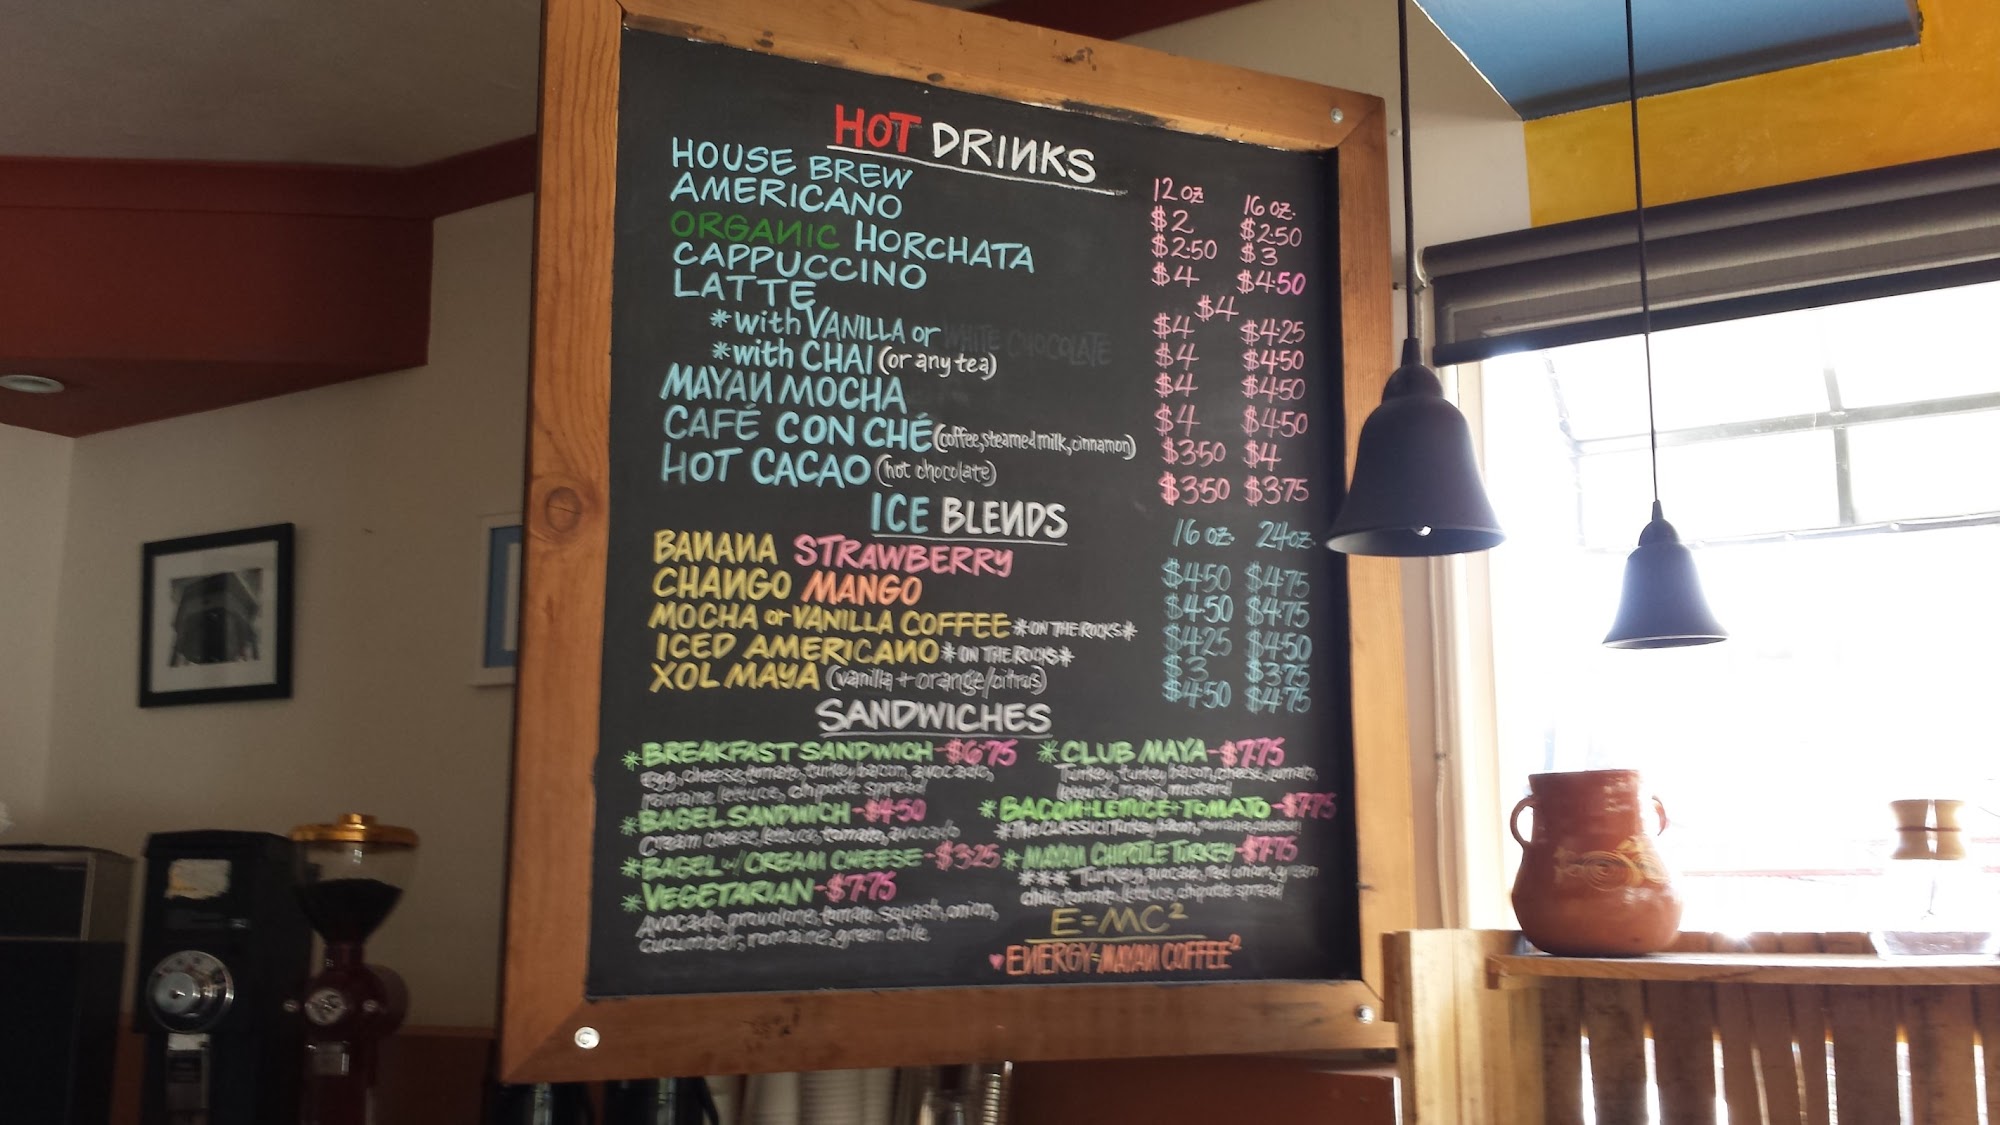 HOT DRINKS
12 oz 16 oz.
HOUSE BREW $2 $2.50
AMERICANO $2.50 $3
ORGANIC HORCHATA $4 $4.50
CAPPUCCINO $4
LATTE $4 $4.25
*with VANILLA or WHITE CHOCOLATE $4 $4.50
*with CHAI (or any tea) $4 $4.50
MAYAN MOCHA $4 $4.50
CAFÉ CON CHÉ (coffee, steamed milk, cinnamon) $3.50 $4
HOT CACAO (hot chocolate) $3.50 $3.75
ICE BLENDS
16 oz. 24 oz.
BANANA STRAWBERRY $4.50 $4.75
CHANGO MANGO $4.50 $4.75
MOCHA or VANILLA COFFEE *ON THE ROCKS* $4.25 $4.50
ICED AMERICANO *ON THE ROCKS* $3 $3.75
XOL MAYA (vanilla + orange/citrus) $4.50 $4.75
SANDWICHES
*BREAKFAST SANDWICH-$6.75
Egg, cheese, tomato, turkey bacon, avocado,
romaine lettuce, chipotle spread
*BAGEL SANDWICH-$4.50
Cream cheese, lettuce, tomato, avocado
*BAGEL w/ CREAM CHEESE-$3.25
*VEGETARIAN-$7.75
Avocado, provolone, tomato, squash, onion,
cucumber, romaine, green chile
*CLUB MAYA-$7.75
Turkey, turkey bacon, cheese, tomato,
lettuce, mayo, mustard
*BACON+LETTUCE+TOMATO-$7.75
*THE CLASSIC! Turkey bacon, romaine, cheese!
*MAYAN CHIPOTLE TURKEY-$7.75
*** Turkey, avocado, red onion, green
chile, tomato, lettuce, chipotle spread
E=MC²
♥ ENERGY=MAYAN COFFEE²